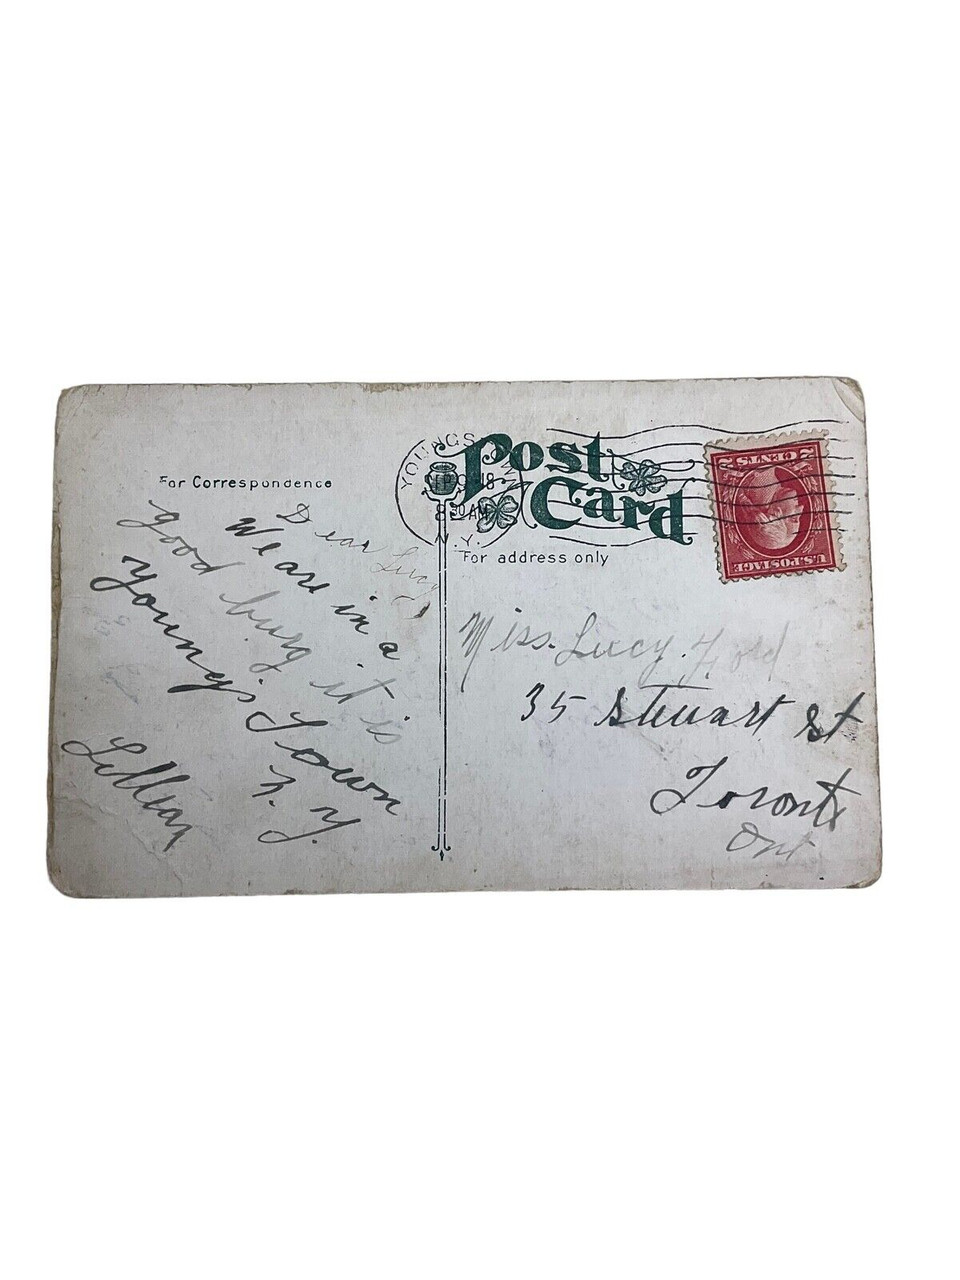 For Correspondence
Dear Lucy
We are in a
good burg it is
Youngs Town
N. Y.
Lillian
YOUNGSTOWN
SEP 9 18
8 30 AM
N.Y.
Post
Card
For address only
2 CENTS 2
U.S. POSTAGE
Miss. Lucy. Ford
35 Steuart St
Toronto
Ont